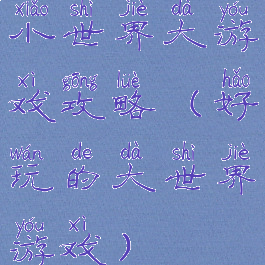 xiǎo shì jiè dà yóu
小世界大游
xì gōng lüè hǎo
戏攻略（好
wán de dà shì jiè
玩的大世界
yóu xì
游戏）